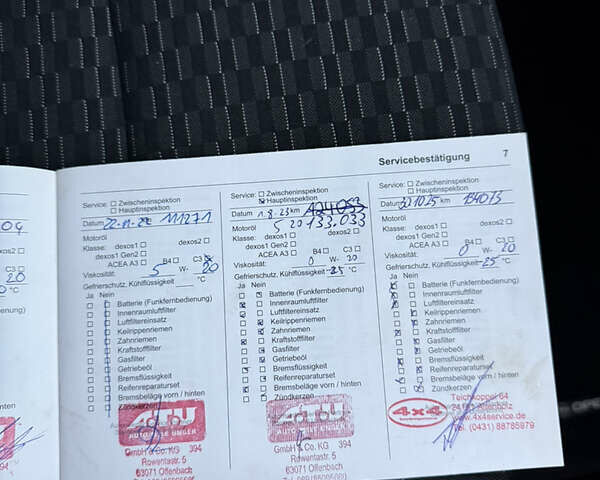 Servicebestätigung 7
04
20
C3
°C
Service: Zwischeninspektion
Hauptinspektion
Datum 111271
Motoröl
Klasse: dexos1 dexos2
dexos1 Gen2
ACEA A3 B4 C3
Viskosität: 5 W- 20
Gefrierschutz, Kühlflüssigkeit °C
Ja Nein
Batterie (Funkfernbedienung)
Innenraumluftfilter
Luftfiltereinsatz
Keilrippenriemen
Zahnriemen
Kraftstofffilter
Gasfilter
Getriebeöl
Bremsflüssigkeit
Reifenreparaturset
Bremsbeläge vorn / hinten
Zündkerzen
A.T.U
AUTO TEILE UNGER
GmbH & Co. KG 394
Rowentastr. 5
63071 Offenbach
Service: Zwischeninspektion
Hauptinspektion
Datum 1.8.23 km
133.033
Motoröl
Klasse: dexos1 dexos2
dexos1 Gen2
ACEA A3 B4 C3
Viskosität: 0 W- 20
Gefrierschutz, Kühlflüssigkeit -25 °C
Ja Nein
Batterie (Funkfernbedienung)
Innenraumluftfilter
Luftfiltereinsatz
Keilrippenriemen
Zahnriemen
Kraftstofffilter
Gasfilter
Getriebeöl
Bremsflüssigkeit
Reifenreparaturset
Bremsbeläge vorn / hinten
Zündkerzen
A.T.U
AUTO TEILE UNGER
GmbH & Co. KG 394
Rowentastr. 5
63071 Offenbach
Service: Zwischeninspektion
Hauptinspektion
Datum km
Motoröl
Klasse: dexos1 dexos2
dexos1 Gen2
ACEA A3 B4 C3
Viskosität: 0 W- 20
Gefrierschutz, Kühlflüssigkeit -25 °C
Ja Nein
Batterie (Funkfernbedienung)
Innenraumluftfilter
Luftfiltereinsatz
Keilrippenriemen
Zahnriemen
Kraftstofffilter
Gasfilter
Getriebeöl
Bremsflüssigkeit
Reifenreparaturset
Bremsbeläge vorn / hinten
Zündkerzen
4x4
Teichkoppel 64
Altenholz
www.4x4service.de
Tel. (0431) 88785979
nten
394